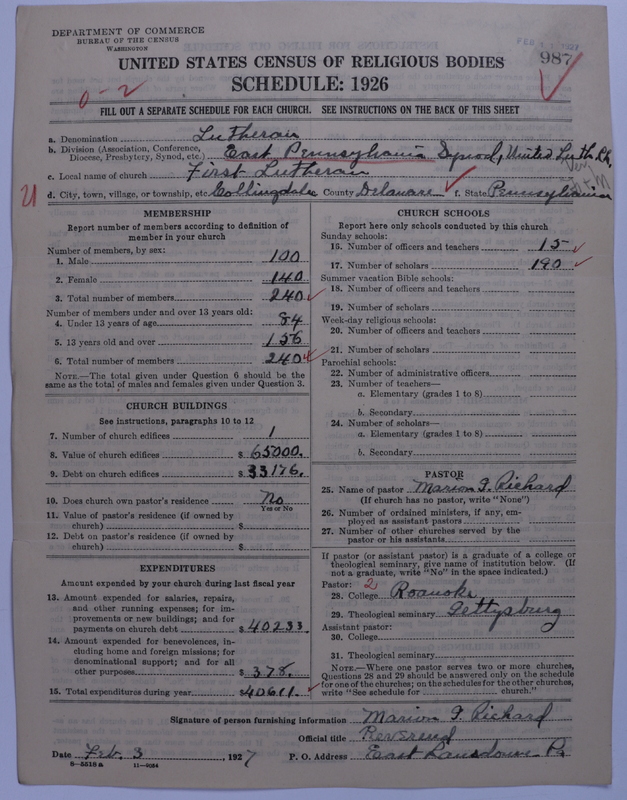 DEPARTMENT OF COMMERCE
BUREAU OF THE CENSUS
WASHINGTON
FEB 1927
987
UNITED STATES CENSUS OF RELIGIOUS BODIES
SCHEDULE: 1926
0-2
FILL OUT A SEPARATE SCHEDULE FOR EACH CHURCH. SEE INSTRUCTIONS ON THE BACK OF THIS SHEET
a. Denomination Lutheran
b. Division (Association, Conference, Diocese, Presbytery, Synod, etc.) East Pennsylvania Synod, United Luth. Ch.
c. Local name of church First Lutheran
U
d. City, town, village, or township, etc. Collingdale County Delaware f. State Pennsylvania
MEMBERSHIP
Report number of members according to definition of
member in your church
Number of members, by sex:
1. Male 100
2. Female 140
3. Total number of members 240
Number of members under and over 13 years old:
4. Under 13 years of age 84
5. 13 years old and over 156
6. Total number of members 240
NOTE.—The total given under Question 6 should be
same as the total of males and females given under Question 3.
CHURCH BUILDINGS
See instructions, paragraphs 10 to 12
7. Number of church edifices 1
8. Value of church edifices $ 65000.
9. Debt on church edifices $ 33176.
10. Does church own pastor's residence No
Yes or No
11. Value of pastor's residence (if owned by
church) $
12. Debt on pastor's residence (if owned by
church) $
EXPENDITURES
Amount expended by your church during last fiscal year
13. Amount expended for salaries, repairs,
and other running expenses; for im-
provements or new buildings; and for
payments on church debt $ 40233.
14. Amount expended for benevolences, in-
cluding home and foreign missions; for
denominational support; and for all
other purposes $ 378.
15. Total expenditures during year $ 40611.
CHURCH SCHOOLS
Report here only schools conducted by this church
Sunday schools:
16. Number of officers and teachers 15
17. Number of scholars 190
Summer vacation Bible schools:
18. Number of officers and teachers
19. Number of scholars
Week-day religious schools:
20. Number of officers and teachers
21. Number of scholars
Parochial schools:
22. Number of administrative officers
23. Number of teachers—
a. Elementary (grades 1 to 8)
b. Secondary
24. Number of scholars—
a. Elementary (grades 1 to 8)
b. Secondary
PASTOR
25. Name of pastor Marion G. Richard
(If church has no pastor, write "None")
26. Number of ordained ministers, if any, em-
ployed as assistant pastors
27. Number of other churches served by the
pastor or his assistants
If pastor (or assistant pastor) is a graduate of a college or
theological seminary, give name of institution below. (If
not a graduate, write "No" in the space indicated.)
Pastor: 2
28. College Roanoke
29. Theological seminary Gettysburg
Assistant pastor:
30. College
31. Theological seminary
NOTE.—Where one pastor serves two or more churches,
Questions 28 and 29 should be answered only on the schedule
for one of the churches; on the schedules for the other churches,
write "See schedule for church."
Signature of person furnishing information Marion G. Richard
Official title Reverend
Date Feb. 3, 1927 P. O. Address East Lansdowne Pa
8-5518 a 11-9034